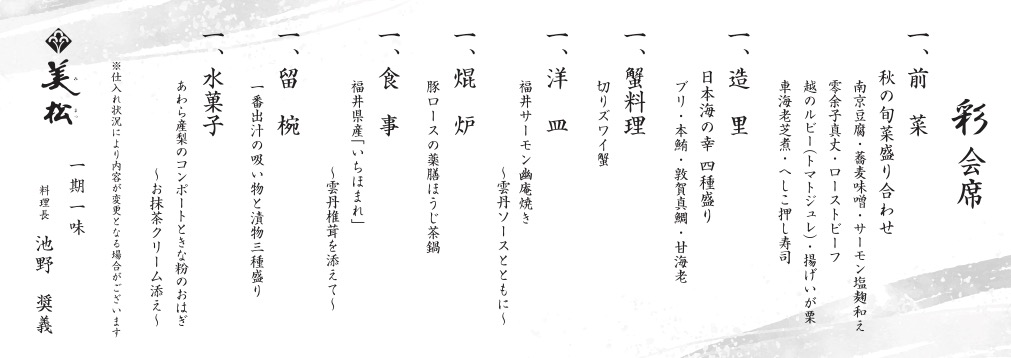 彩 会席
一、前 菜
秋の旬菜盛り合わせ
南京豆腐・蕎麦味噌・サーモン塩麹和え
零余子真丈・ローストビーフ
越のルビー(トマトジュレ)・揚げいが栗
車海老芝煮・へしこ押し寿司
一、造 里
日本海の幸 四種盛り
ブリ・本鮪・敦賀真鯛・甘海老
一、蟹料理
切りズワイ蟹
一、洋 皿
福井サーモン幽庵焼き
～雲丹ソースとともに～
一、焜 炉
豚ロースの薬膳ほうじ茶鍋
一、食 事
福井県産「いちほまれ」
～雲丹椎茸を添えて～
一、留 椀
一番出汁の吸い物と漬物三種盛り
一、水菓子
あわら産梨のコンポートときな粉のおはぎ
～お抹茶クリーム添え～
※仕入れ状況により内容が変更となる場合がございます
一期一味
料理長 池野 奨義
美松
みまつ